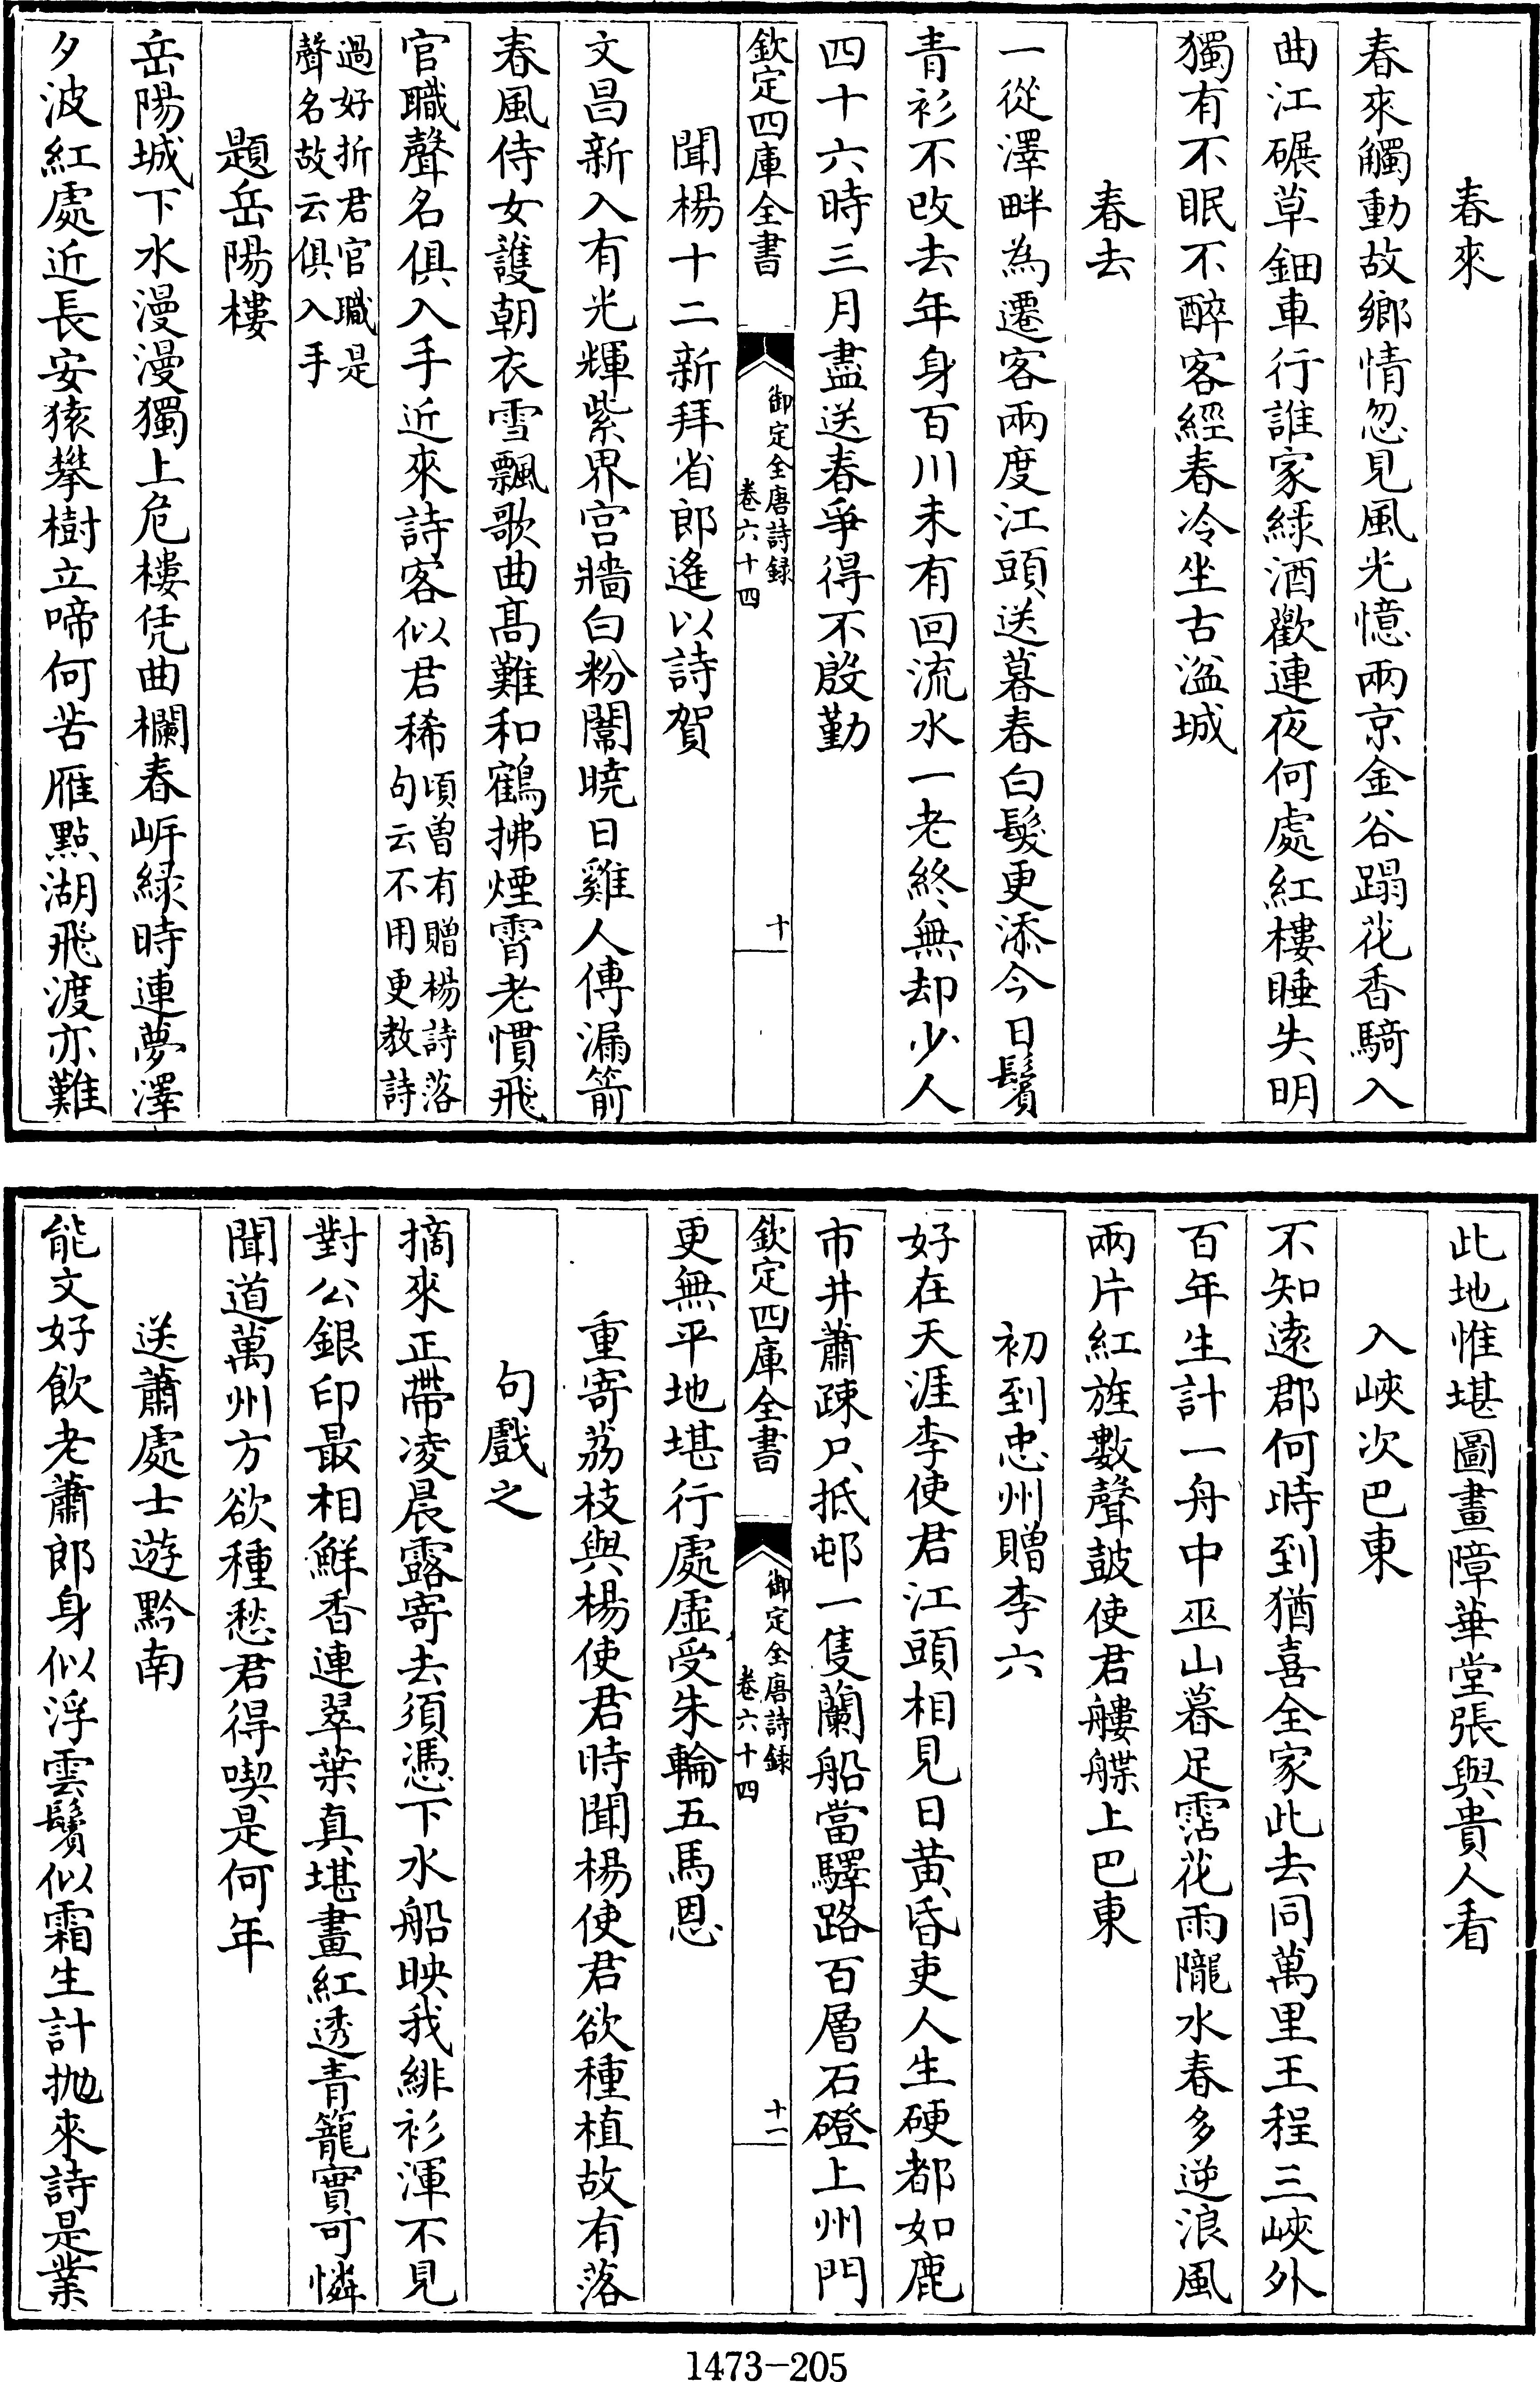 春來
春來觸動故鄉情忽見風光憶兩京金谷蹋花香騎入
曲江碾草鈿車行誰家緑酒歡連夜何處紅樓睡失明
獨有不眠不醉客經春冷坐古湓城
春去
一從澤畔為遷客兩度江頭送暮春白髮更添今日鬢
青衫不改去年身百川未有回流水一老終無却少人
四十六時三月盡送春爭得不殷勤
欽定四庫全書
御定全唐詩録
卷六十四
十
聞楊十二新拜省郎遙以詩賀
文昌新入有光輝紫界宫牆白粉闈曉日雞人傳漏箭
春風侍女護朝衣雪飄歌曲髙難和鶴拂煙霄老慣飛
官職聲名俱入手近來詩客似君稀頃曽有贈楊詩落
句云不用更教詩
過好折君官職是
聲名故云俱入手
題岳陽樓
岳陽城下水漫漫獨上危樓凭曲欄春岍緑時連夢澤
夕波紅處近長安猿攀樹立啼何苦雁㸃湖飛渡亦難
此地惟堪圖畫障華堂張與貴人看
入峽次巴東
不知遠郡何時到猶喜全家此去同萬里王程三峽外
百年生計一舟中巫山暮足霑花雨隴水春多逆浪風
兩片紅旌數聲鼓使君艛艓上巴東
初到忠州贈李六
好在天涯李使君江頭相見日黄昏吏人生硬都如鹿
市井蕭疎只抵邨一隻蘭船當驛路百層石磴上州門
欽定四庫全書
御定全唐詩録
卷六十四
十一
更無平地堪行處虚受朱輪五馬恩
重寄荔枝與楊使君時聞楊使君欲種植故有落
句戲之
摘來正帶凌晨露寄去須憑下水船映我緋衫渾不見
對公銀印最相鮮香連翠葉真堪畫紅透青籠實可憐
聞道萬州方欲種愁君得喫是何年
送蕭處士遊黔南
能文好飲老蕭郎身似浮雲鬢似霜生計抛來詩是業
1473-205